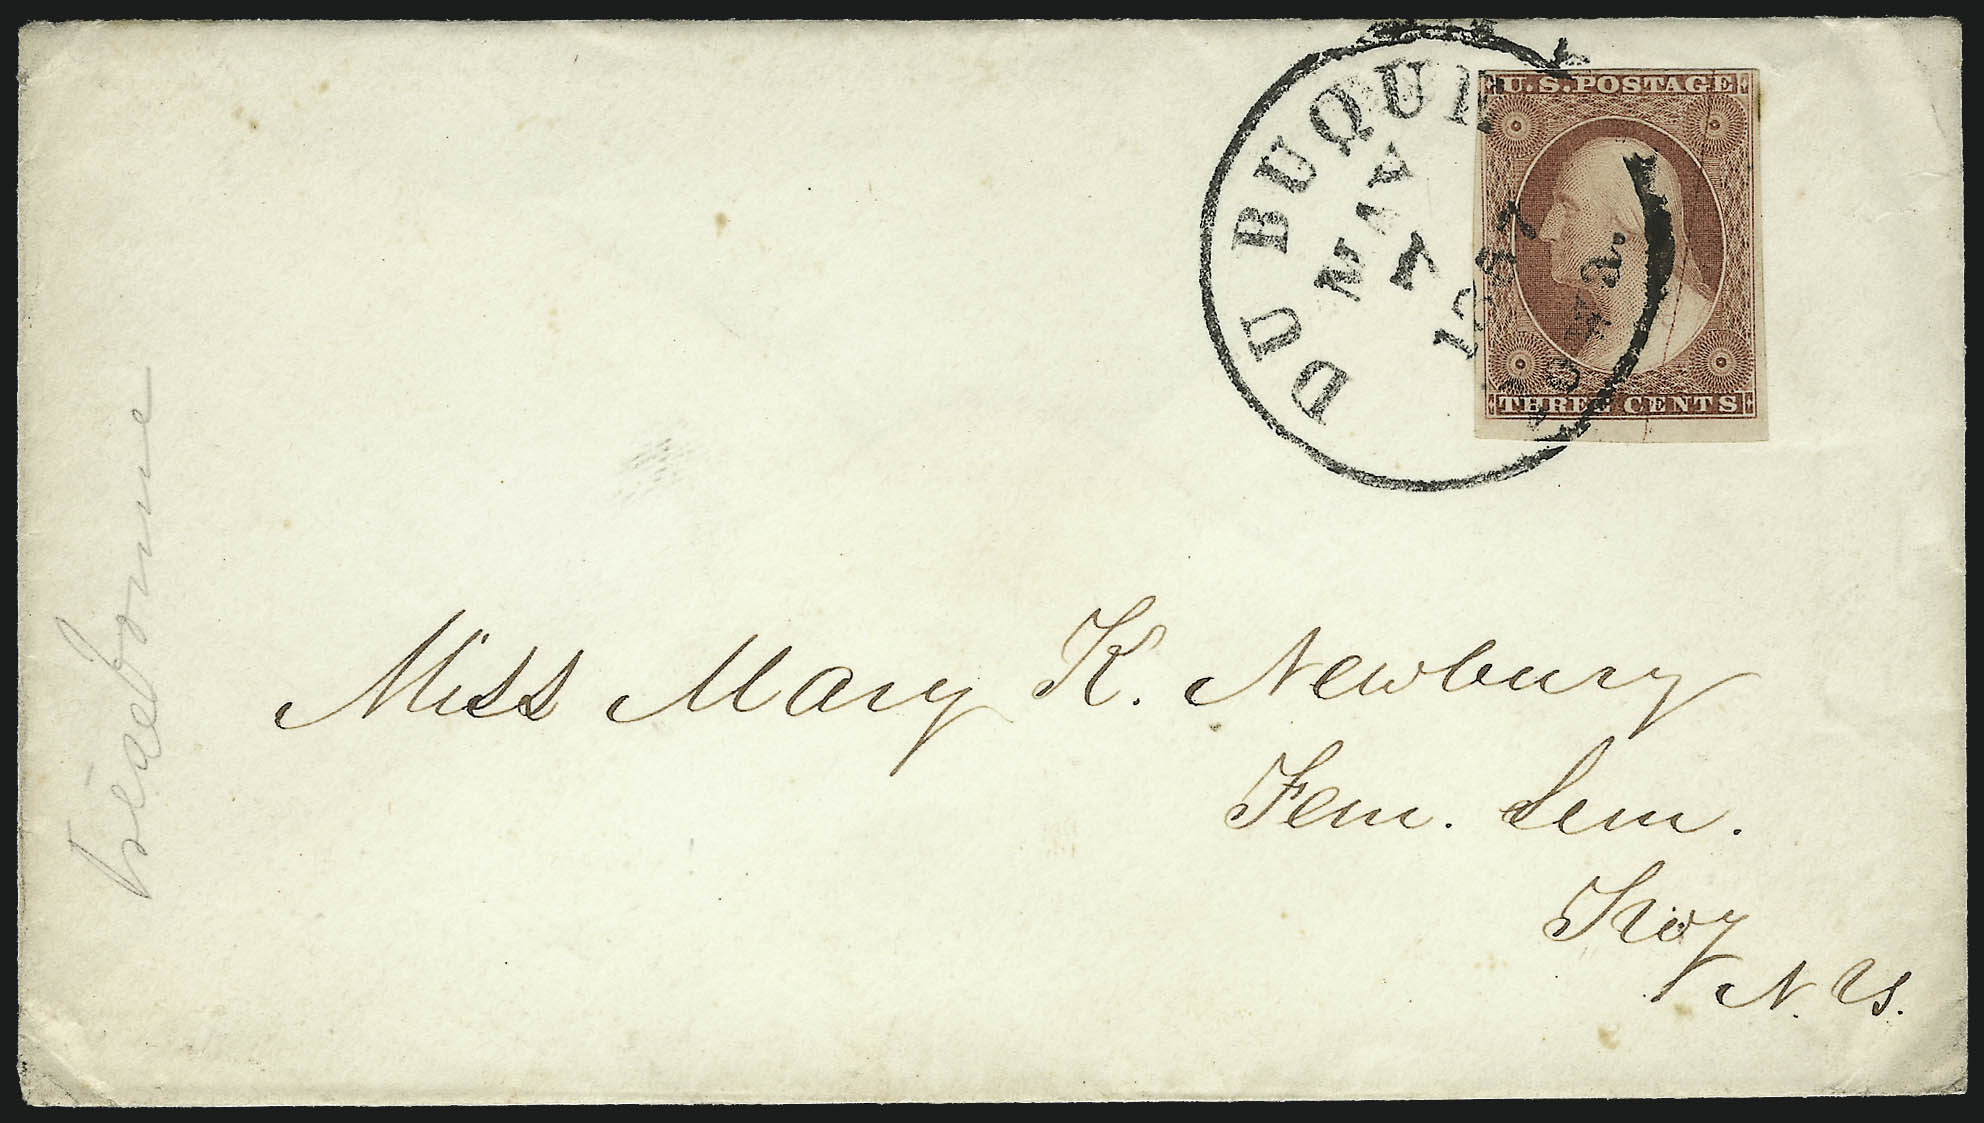 DUBUQUE
MAY
1
1857
Iowa.
U.S. POSTAGE
THREE CENTS
Miss Mary K. Newbury
Fem. Sem.
Troy
N. Y.